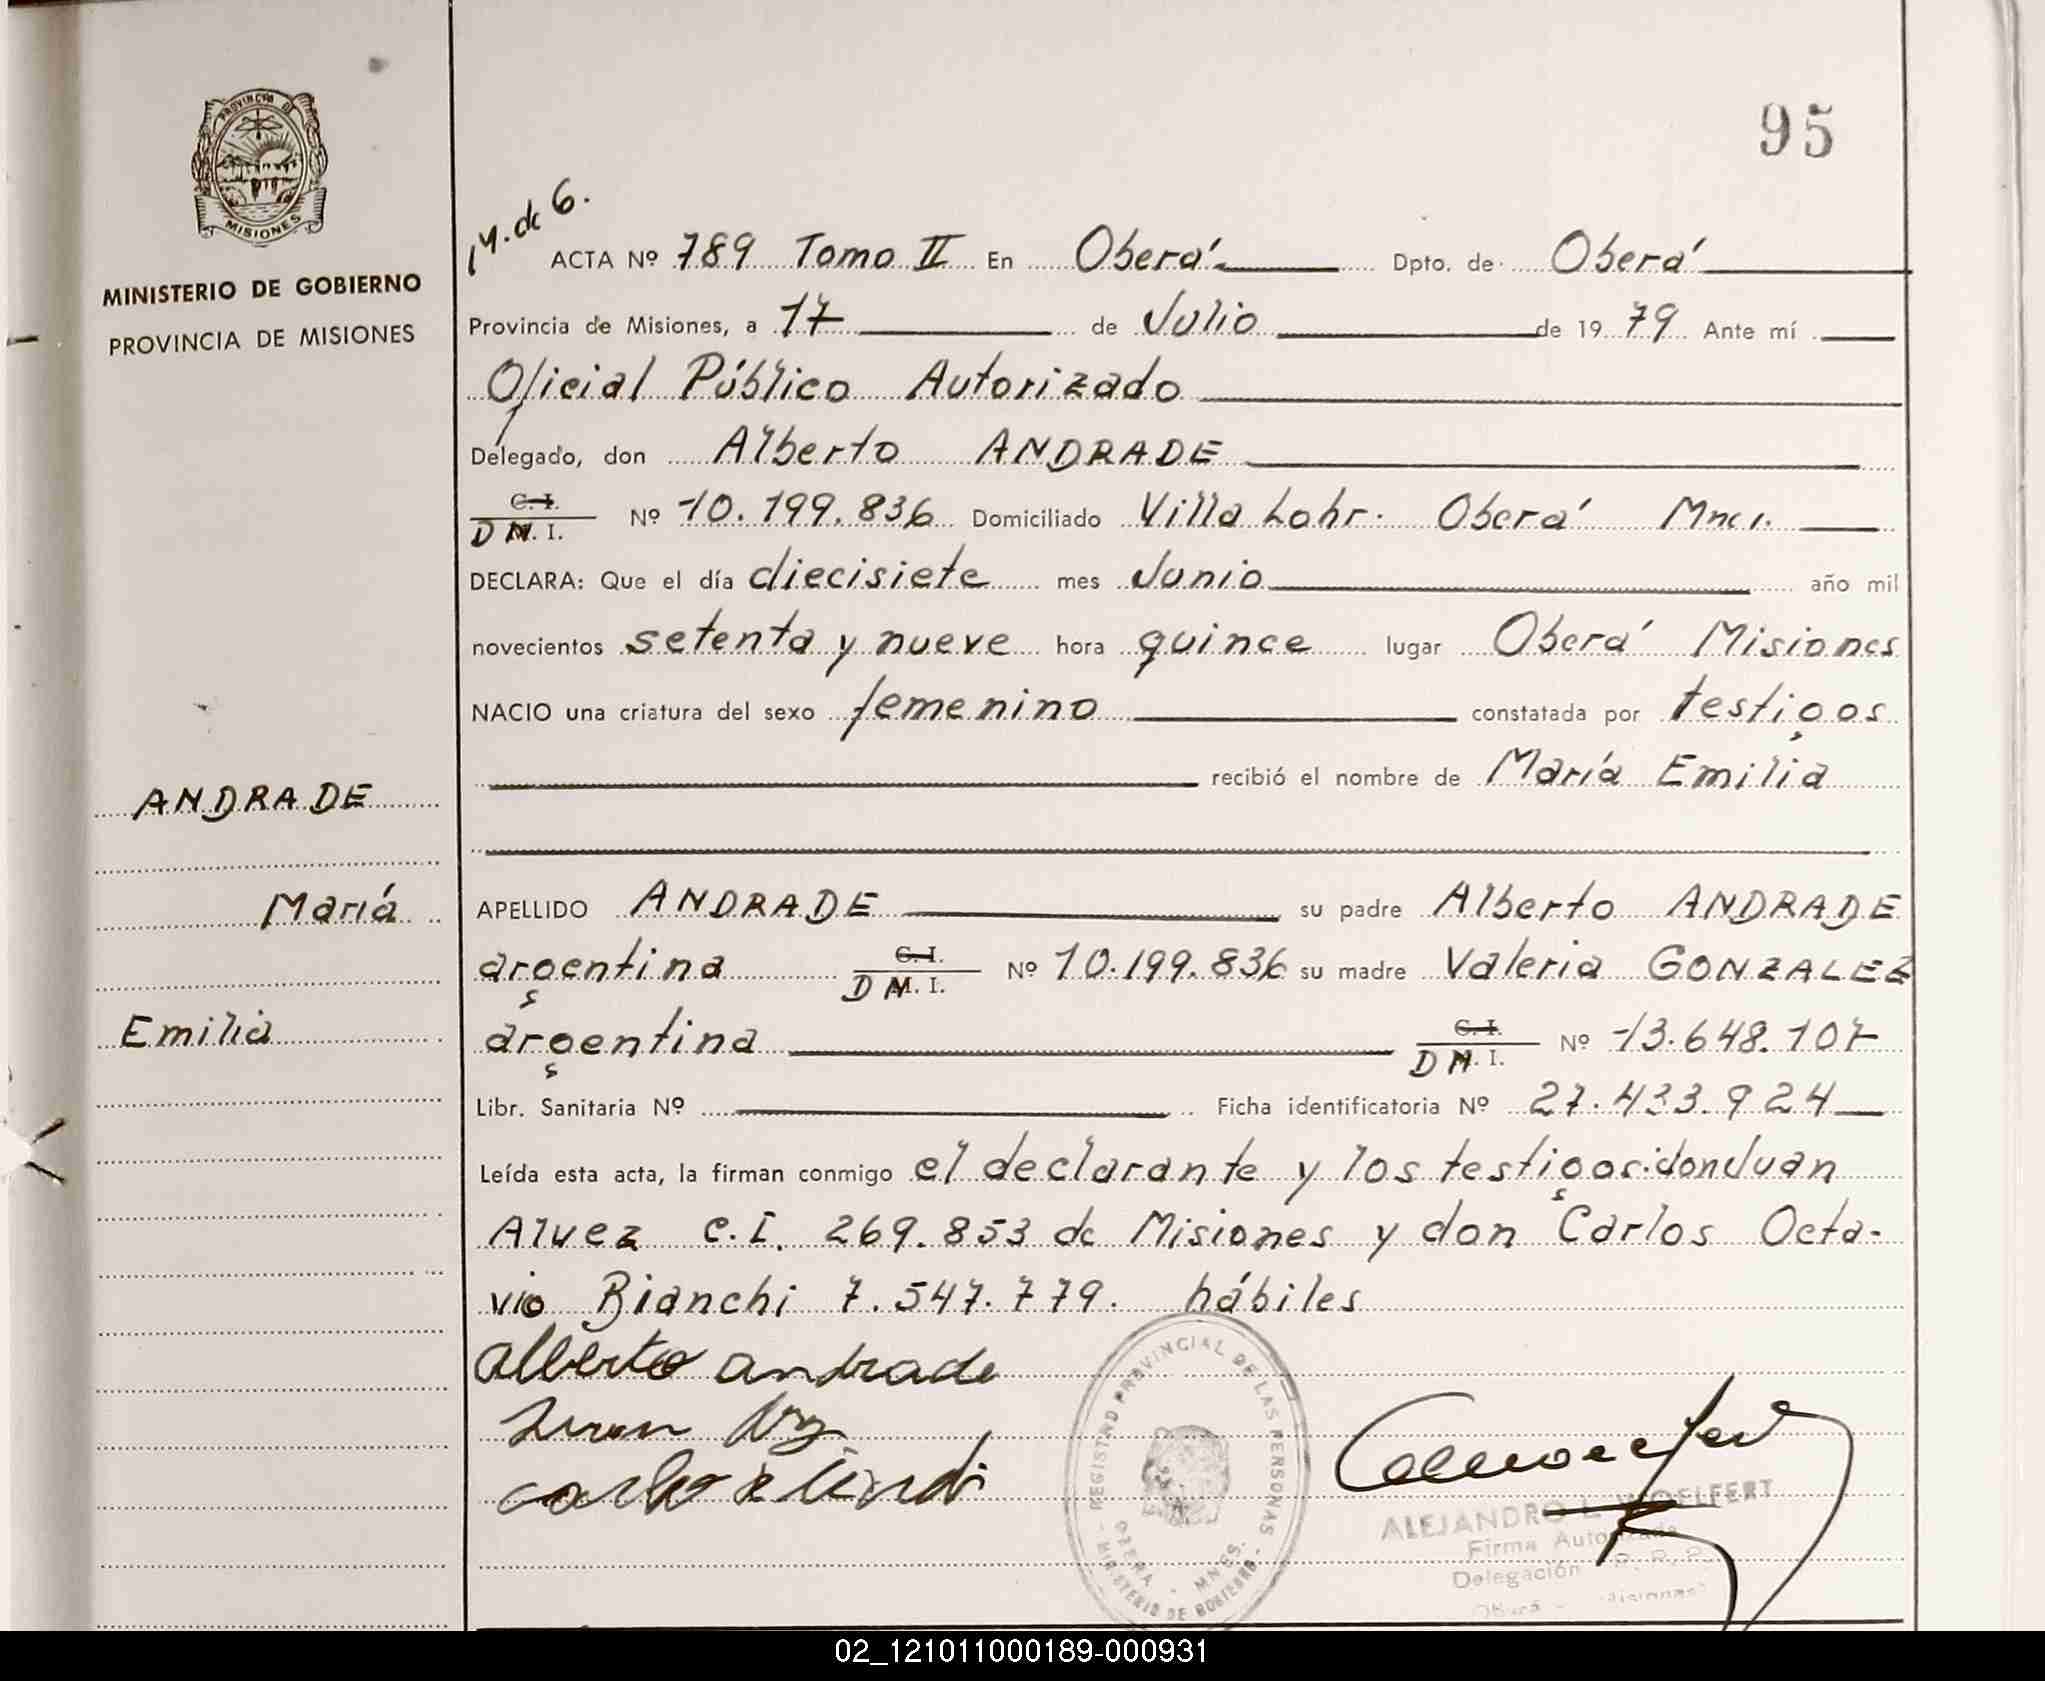 95
PROVINCIA DE
MISIONES
MINISTERIO DE GOBIERNO
PROVINCIA DE MISIONES
ANDRADE
María
Emilia
14. de 6.
ACTA Nº 789 Tomo II En Oberá Dpto. de Oberá
Provincia de Misiones, a 17 de Julio de 1979 Ante mí
Oficial Público Autorizado
Delegado, don Alberto ANDRADE
C. I.
D N. I. Nº 10.199.836 Domiciliado Villa Lohr. Oberá Mnes.
DECLARA: Que el día diecisiete mes Junio año mil
novecientos setenta y nueve hora quince lugar Oberá Misiones
NACIO una criatura del sexo femenino constatada por testigos
recibió el nombre de María Emilia
APELLIDO ANDRADE su padre Alberto ANDRADE
argentina C. I. D N. I. Nº 10.199.836 su madre Valeria GONZALEZ
argentina C. I. D N. I. Nº 13.648.107
Libr. Sanitaria Nº Ficha identificatoria Nº 27.433.924
Leída esta acta, la firman conmigo el declarante y los testigos: don Juan
Alvez C.I. 269.853 de Misiones y don Carlos Octa-
vio Bianchi 7.547.779. hábiles
Alberto Andrade
Juan
REGISTRO PROVINCIAL DE LAS PERSONAS
OBERA - MNES.
MINISTERIO DE GOBIERNO
ALEJANDRO L. WOELFERT
Firma Autorizada
Delegación R. P.
Oberá - Misiones
02_121011000189-000931